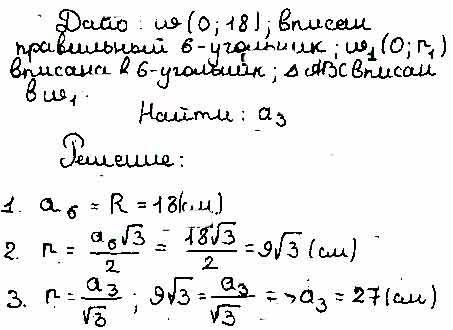 Дано: ω (0; 18); вписан
правильный 6-угольник; ω₁ (0; r₁)
вписана в 6-угольник; Δ ABC вписан
в ω₁.
Найти: a₃
Решение:
1. a₆ = R = 18(см)
2. r = a₆√3/2 = 18√3/2 = 9√3 (см)
3. r = a₃/√3; 9√3 = a₃/√3 => a₃ = 27(см)